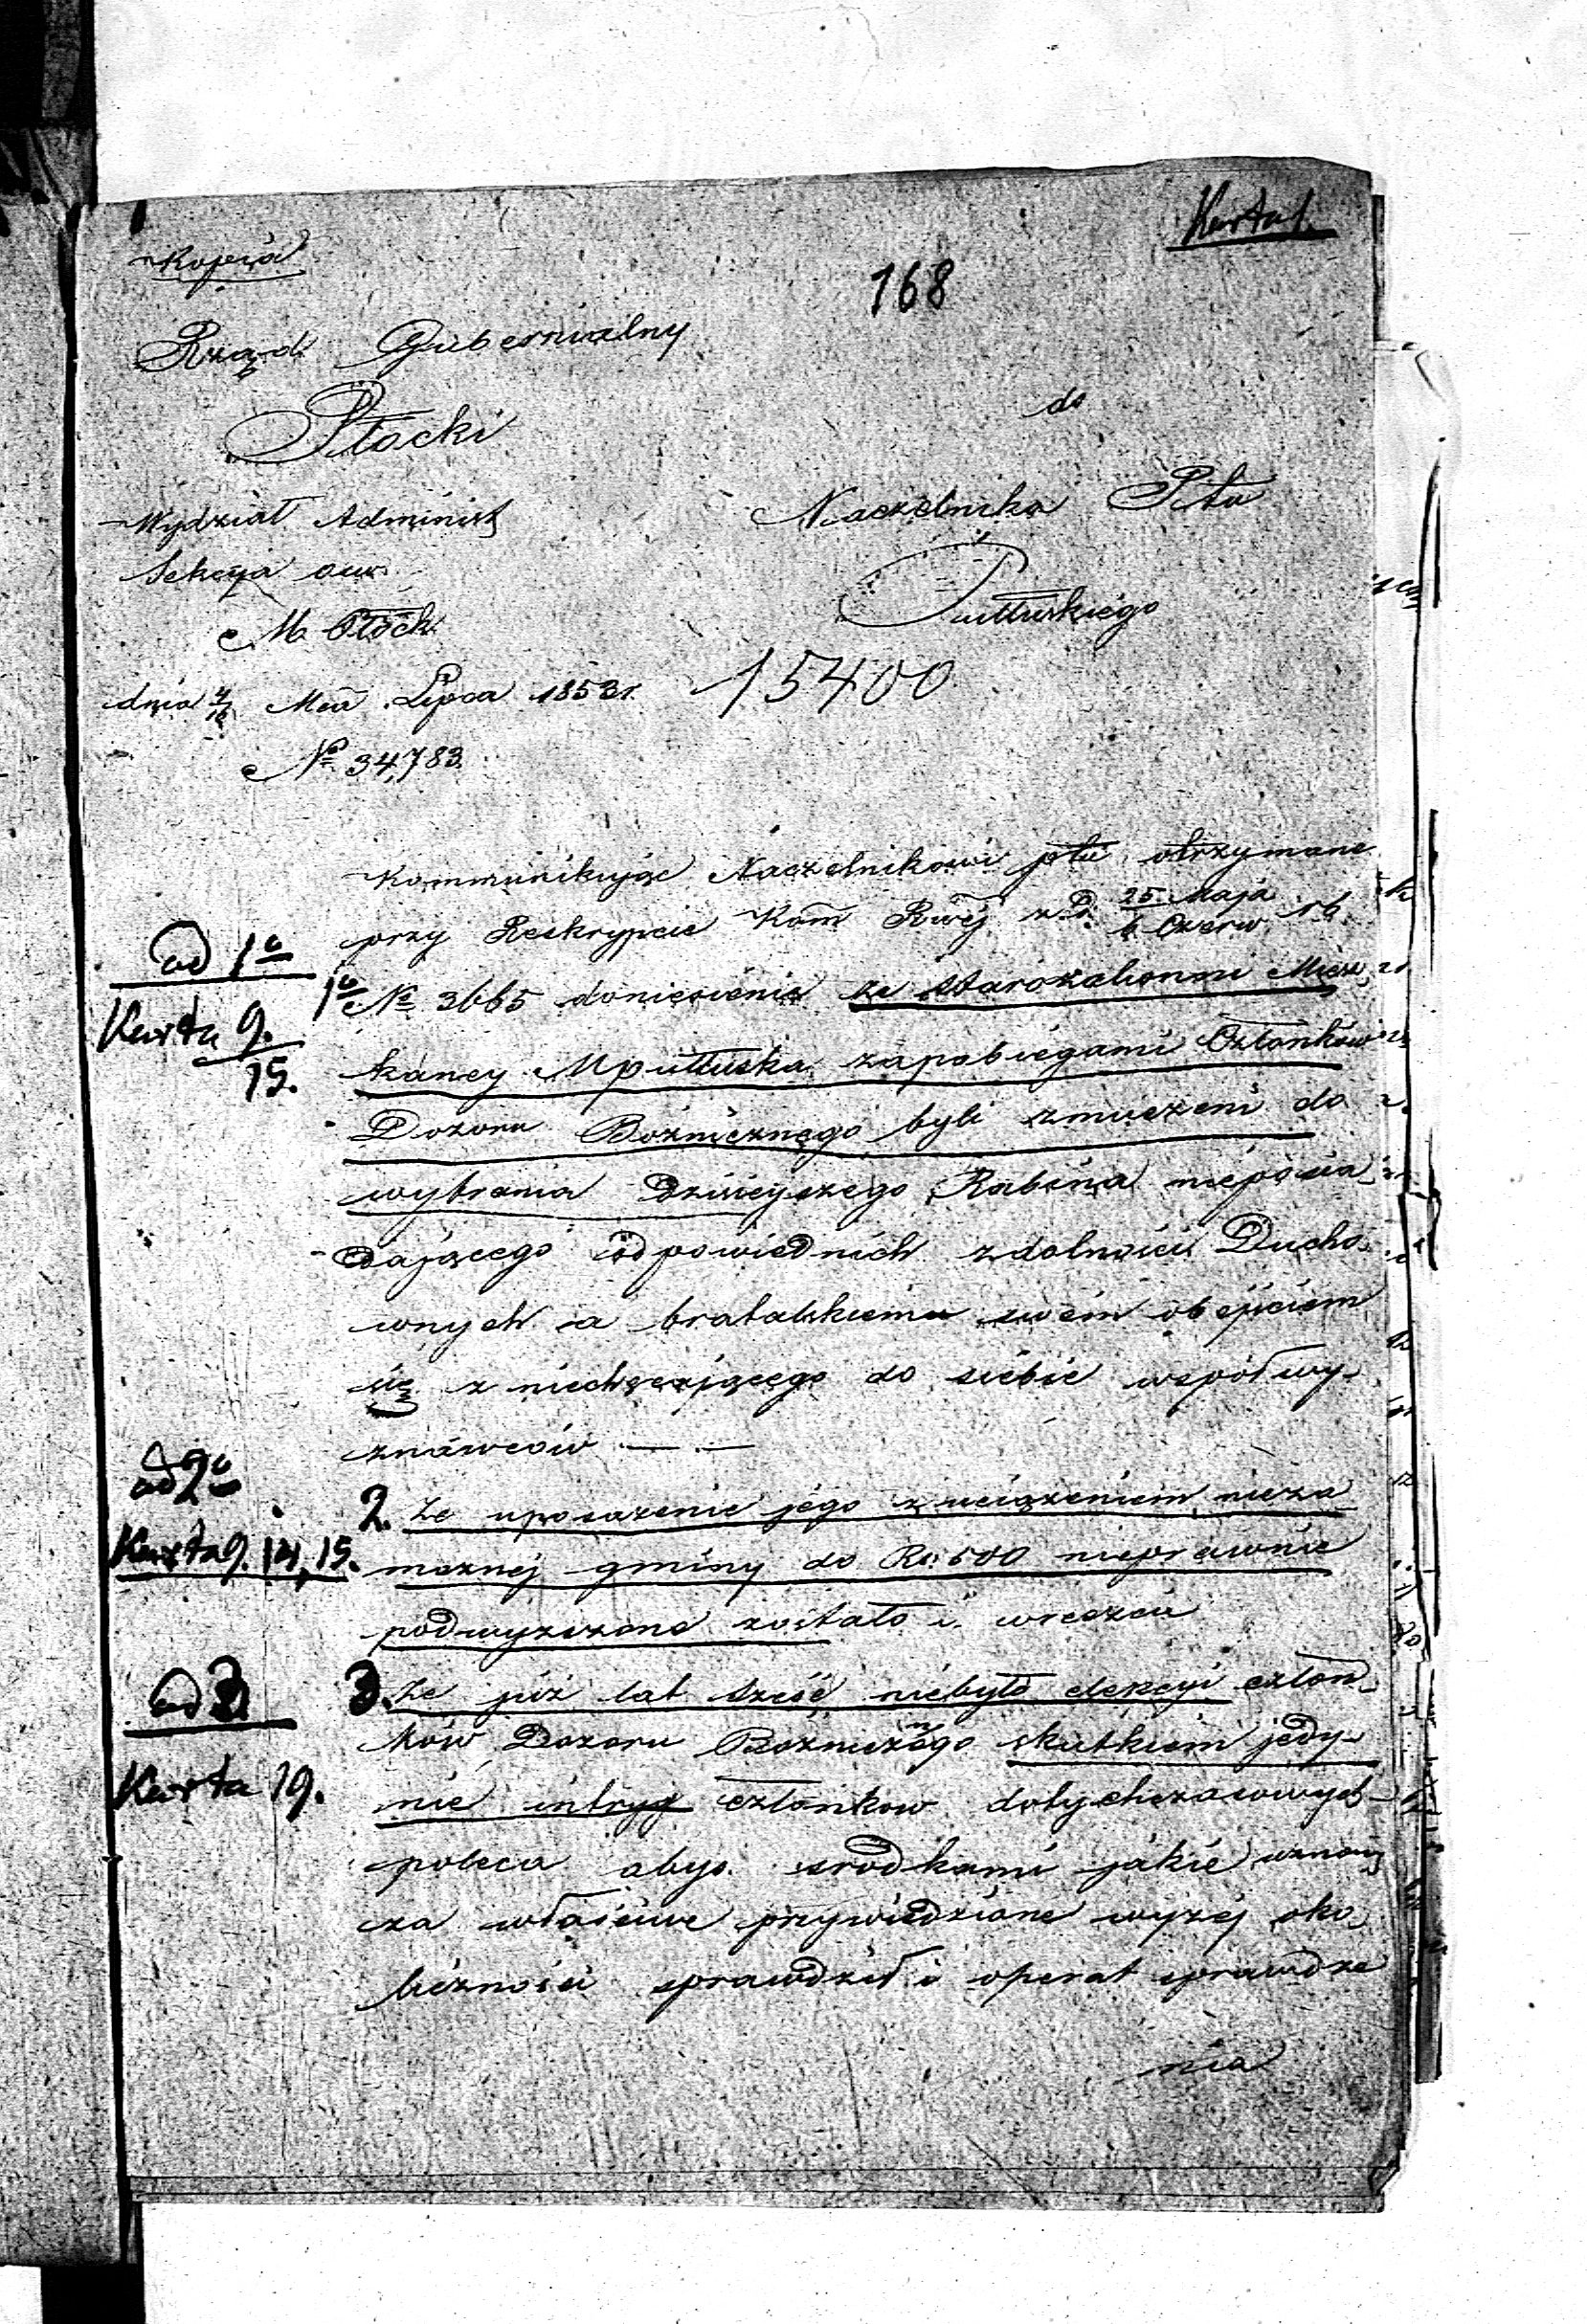 Karta 1.
Kopija
168
Rząd Gubernialny
Płocki
do
Wydział Administ
Naczelnika Ptu
Sekcyja
M. Płock
Pułtuskiego
dnia 4/16 Mca Lipca 1853 r.
15400
№ 34,783.
Kommunikując Naczelnikowi ptu otrzymane
przy Reskrypcie Kom Rwej z D. 25 Maja / 6 Czerw r b
ad 1o
1o № 3665 doniesienia że starozakonni Miesz
Karta 9.
15.
kańcy M pułtuska zapobiegami Członków
Dozoru Bożnicznego byli zmuszeni do
wybrania Dzisiejszego Rabina nieposia
dającego odpowiednich zdolności Ducho
wnych a brutalskiem swém obejściem
się zniechęcającego do siebie współwy-
znawców — —
ad 2o
2. że uposażenie jego z uciążeniem nieza
Karta 9. 14, 15.
możnej gminy do Rs. 500 nieprawnie
podwyższone zostało i wreszcie
ad 3
3. że już lat sześć niebyło elekcyi człon
ków Dozoru Bożniczego skutkiem jedy-
Karta 19.
nie intryg członków dotychczasowych
poleca abyś środkami jakie uzna
za właściwe przywiedzione wyżej oko
liczności sprawdził i operat sprawdze
nia